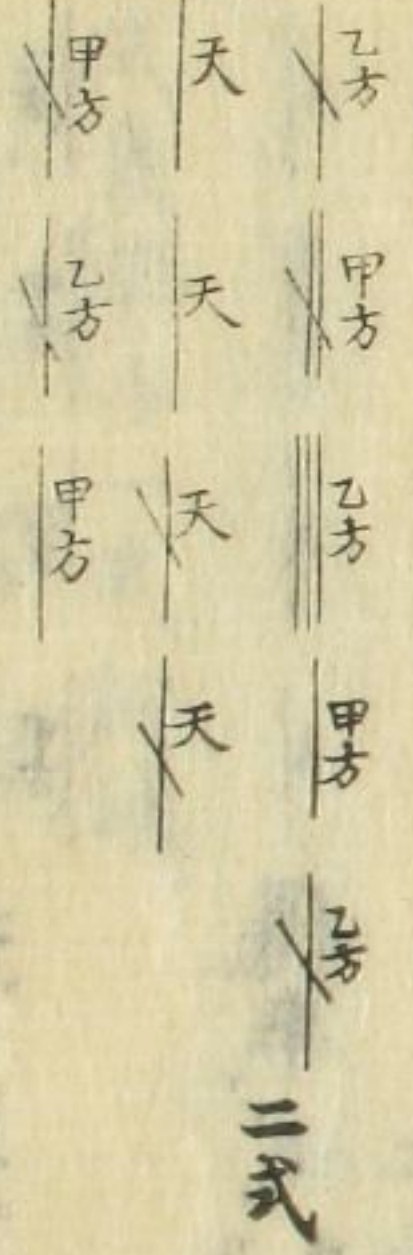 乙方甲方乙方甲方乙方二式
天天天天
甲方乙方甲方